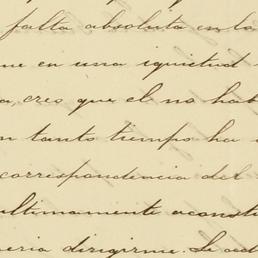 falta absoluta en la
me en una iquietud
a, creo que el no hab
n tanto tiempo ha
correspondencia del
ultimamente aconst
eria dirigirme. Si